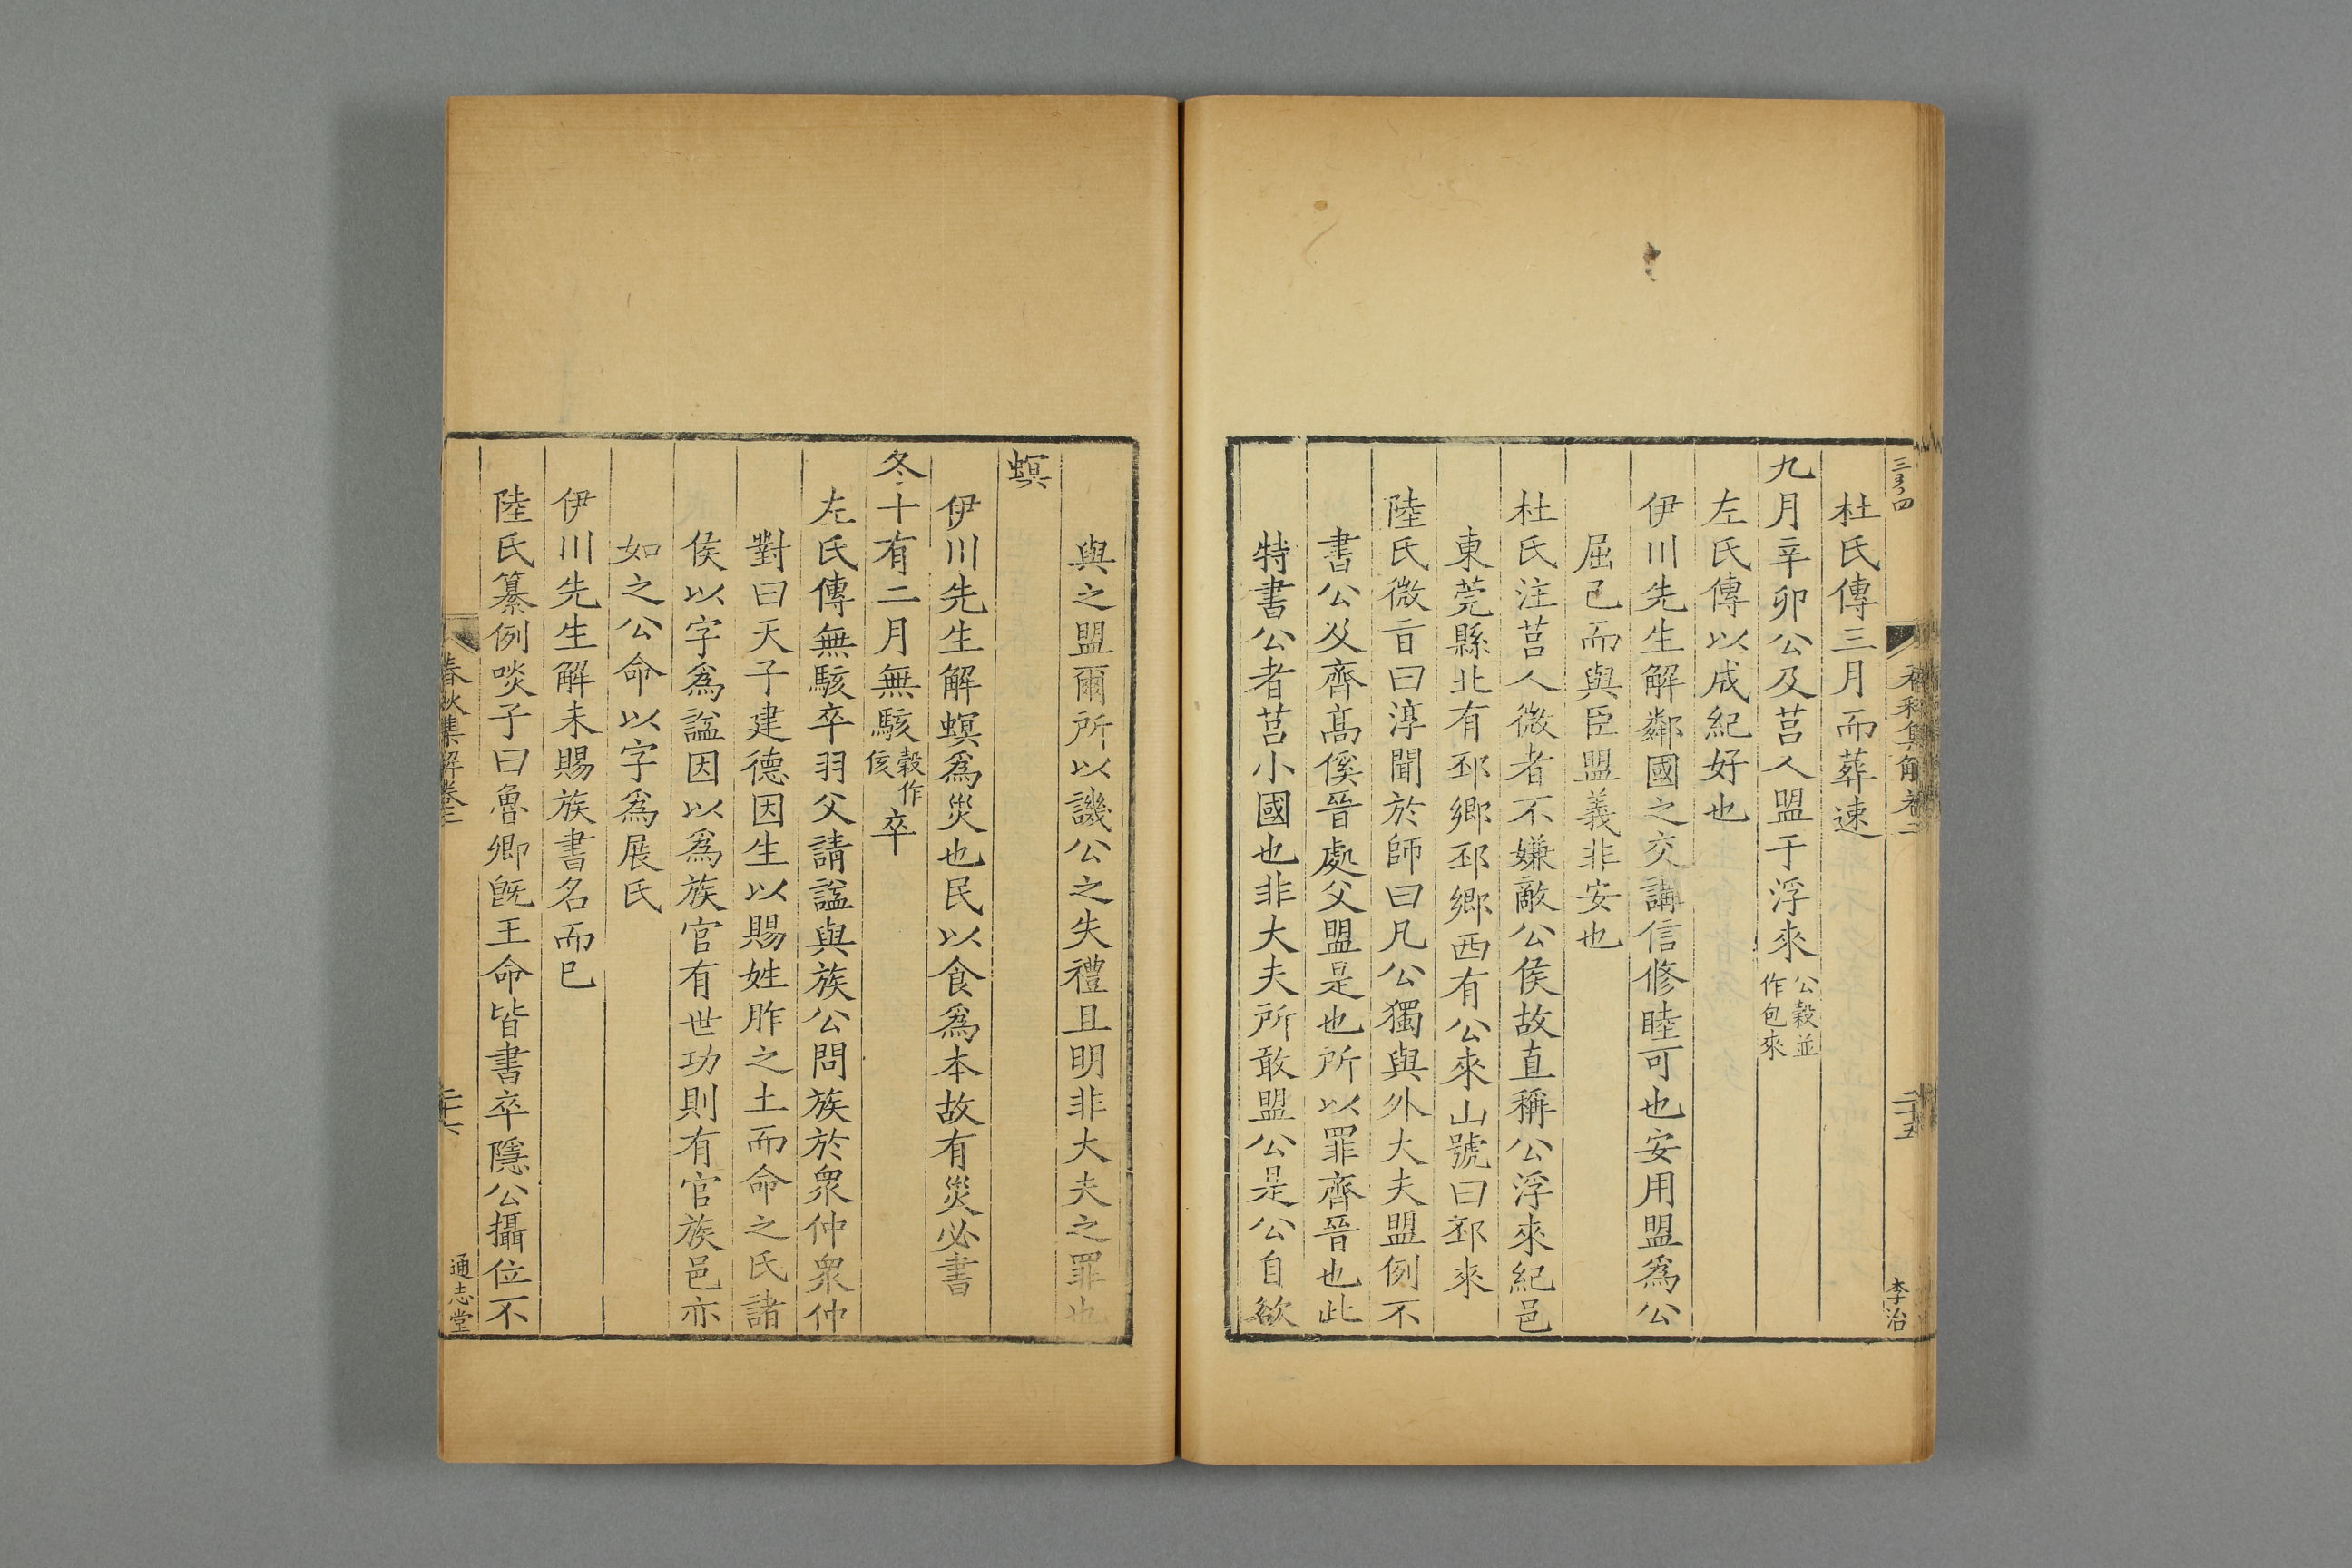 三百四
春秋集解卷二
二十五
李治
杜氏傳三月而葬速
九月辛卯公及莒人盟于浮來公穀並作包來
左氏傳以成紀好也
伊川先生解鄰國之交講信修睦可也安用盟爲公
屈己而與臣盟義非安也
杜氏注莒人微者不嫌敵公侯故直稱公浮來紀邑
東莞縣北有邳鄉邳鄉西有公來山號曰邳來
陸氏微旨曰淳聞於師曰凡公獨與外大夫盟例不
書公及齊高傒晉處父盟是也所以罪齊晉也此
特書公者莒小國也非大夫所敢盟公是公自欲
與之盟爾所以譏公之失禮且明非大夫之罪也
螟
伊川先生解螟爲災也民以食爲本故有災必書
冬十有二月無駭穀作侅卒
左氏傳無駭卒羽父請諡與族公問族於衆仲衆仲
對曰天子建德因生以賜姓胙之土而命之氏諸
侯以字爲諡因以爲族官有世功則有官族邑亦
如之公命以字爲展氏
伊川先生解未賜族書名而已
陸氏纂例啖子曰魯卿旣王命皆書卒隱公攝位不
春秋集解卷二
二十六
通志堂